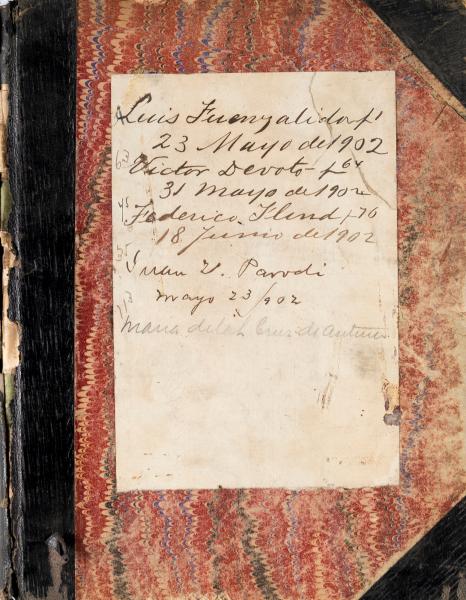 Luis Fuenzalida f1
23 Mayo de 1902
63 Victor Devoto f64
31 Mayo de 1902
45 Federico Flind f76
18 Junio de 1902
35
Juan V. Parodi
Mayo 23/902
Maria de la Cruz de